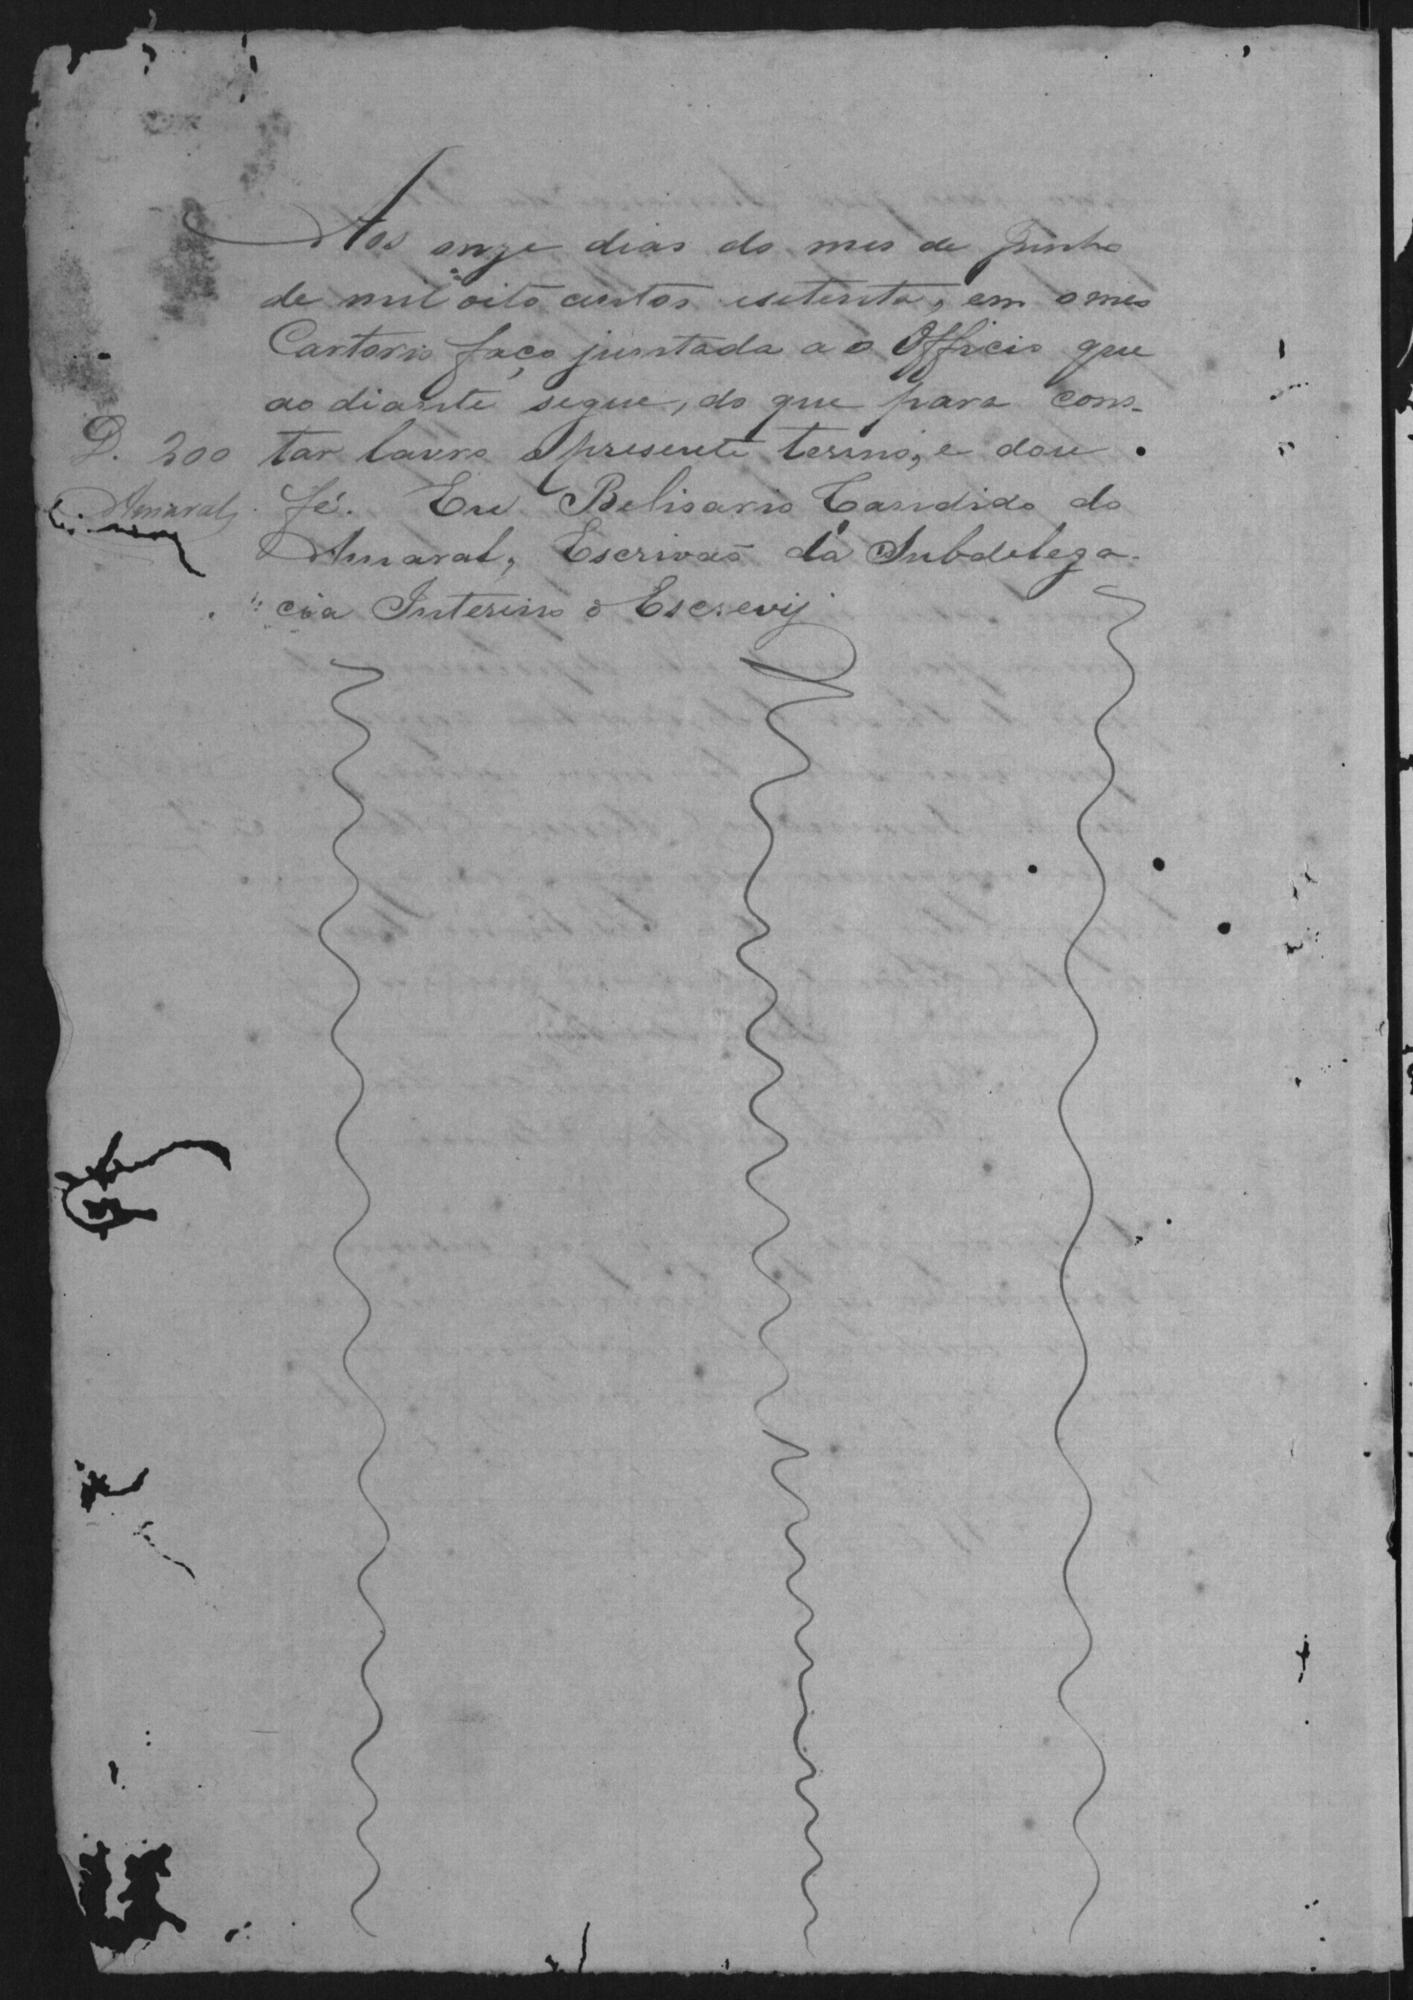 Aos onze dias do mes de Junho
de mil oito centos e setenta, em o meo
Cartorio faço juntada a o Officio que
ao diante segue, do que para cons-
D. 200 tar lavro o presente termo, e dou
Amaral fé. Eu Belisario Candido do
Amaral, Escrivaõ da Subdelega-
cia Interino o Escrevij